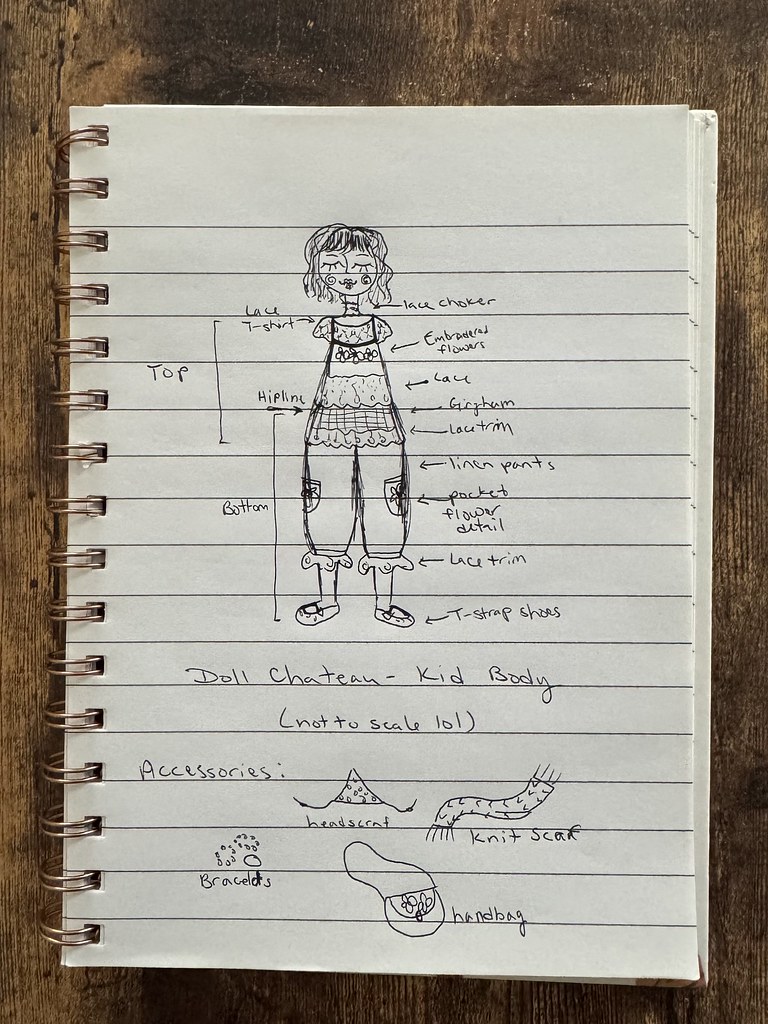 lace choker
Lace
T-shirt
Embroidered
flowers
Top
Lace
Hipline
Gingham
Lace trim
linen pants
Bottom
pocket
flower
detail
Lace trim
T-strap shoes
Doll Chateau - Kid Body
(not to scale lol)
Accessories:
headscraf
knit scarf
Bracelets
handbag